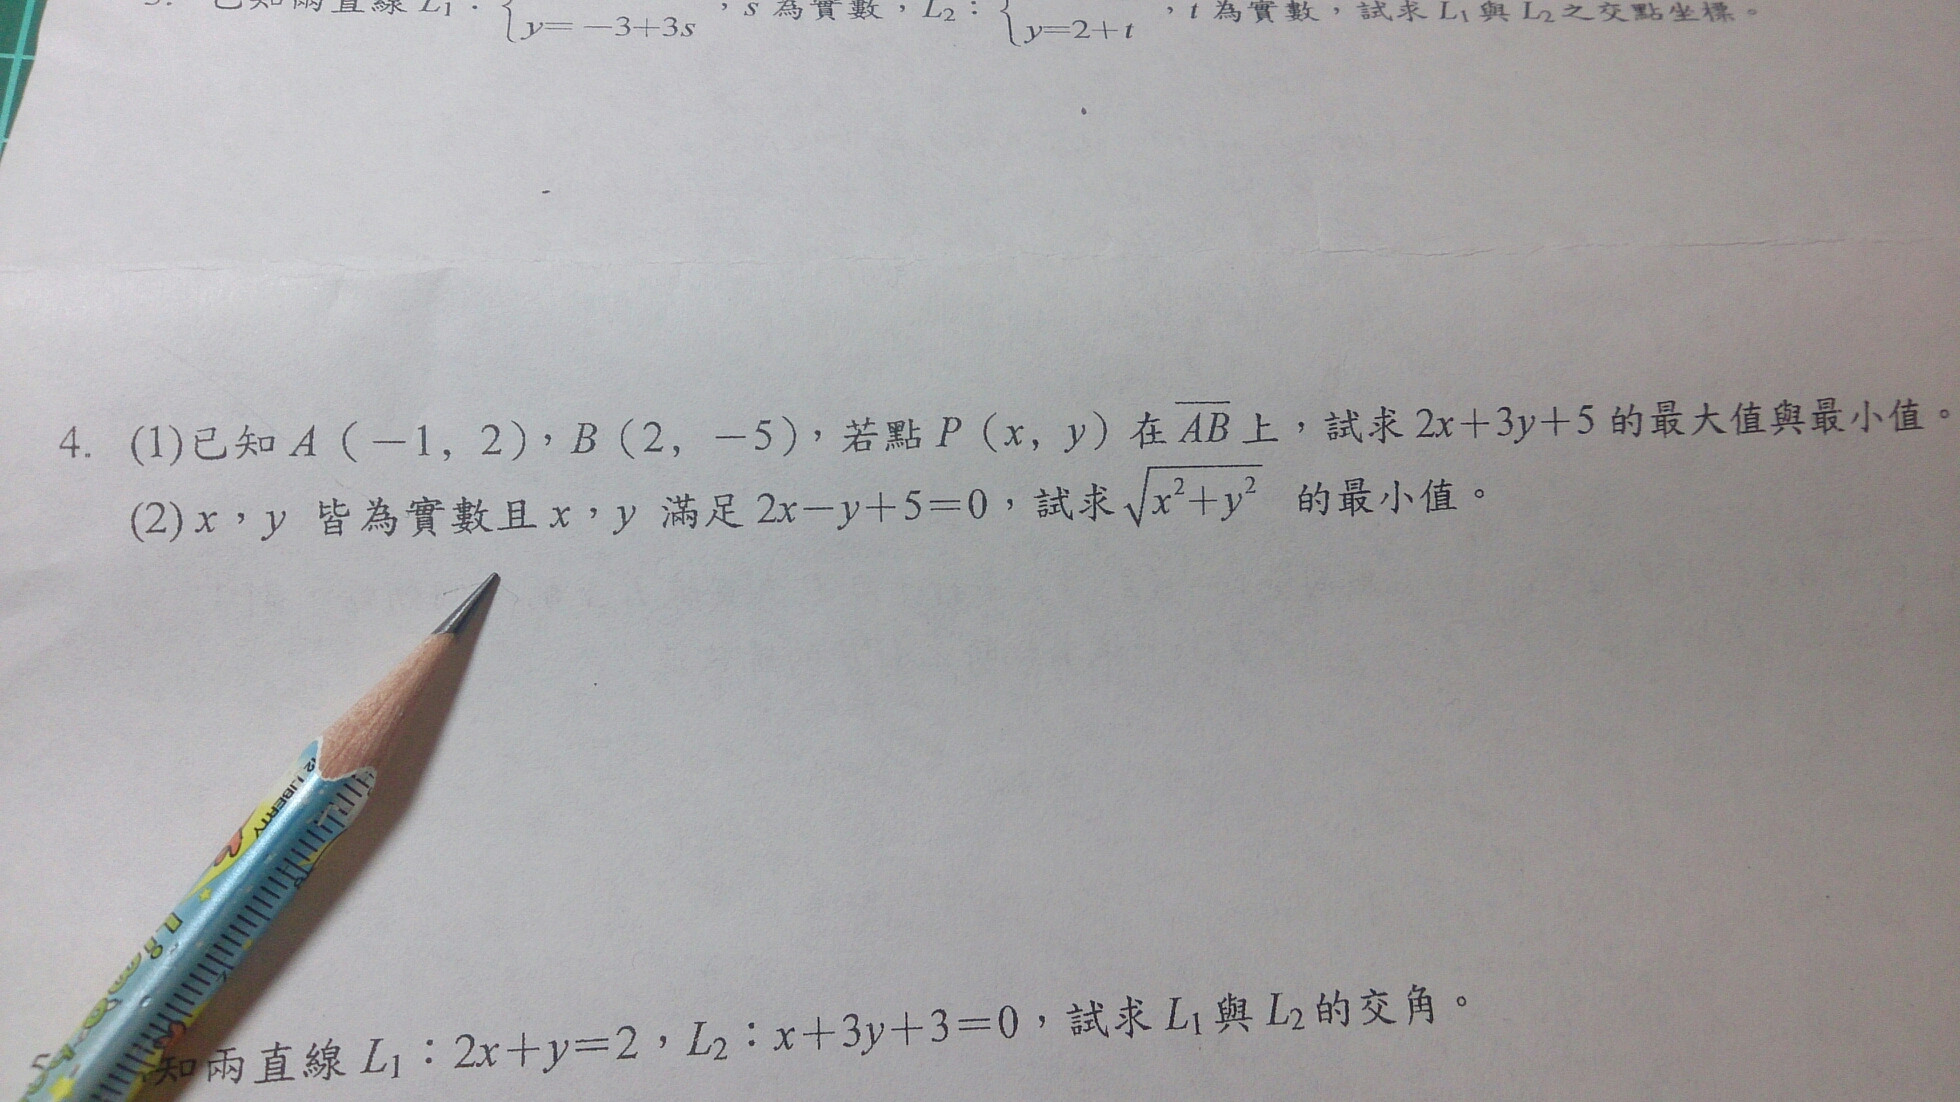 3. 已知兩直線 L₁：{ y=−3+3s ，s 為實數，L₂：{ y=2+t ，t 為實數，試求 L₁ 與 L₂ 之交點坐標。
4. (1)已知 A（−1, 2），B（2, −5），若點 P（x, y）在 A̅B̅ 上，試求 2x+3y+5 的最大值與最小值。
(2) x，y 皆為實數且 x，y 滿足 2x−y+5=0，試求 √(x²+y²) 的最小值。
LIBERTY
5 知兩直線 L₁：2x+y=2，L₂：x+3y+3=0，試求 L₁ 與 L₂ 的交角。